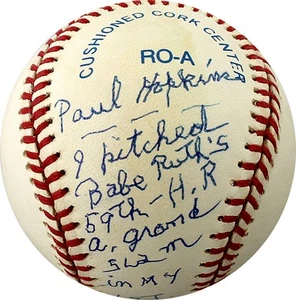 CUSHIONED CORK CENTER
RO-A
Paul Hopkins
I pitched
Babe Ruth's
59th - H.R
a. grand
slam
in my
1st